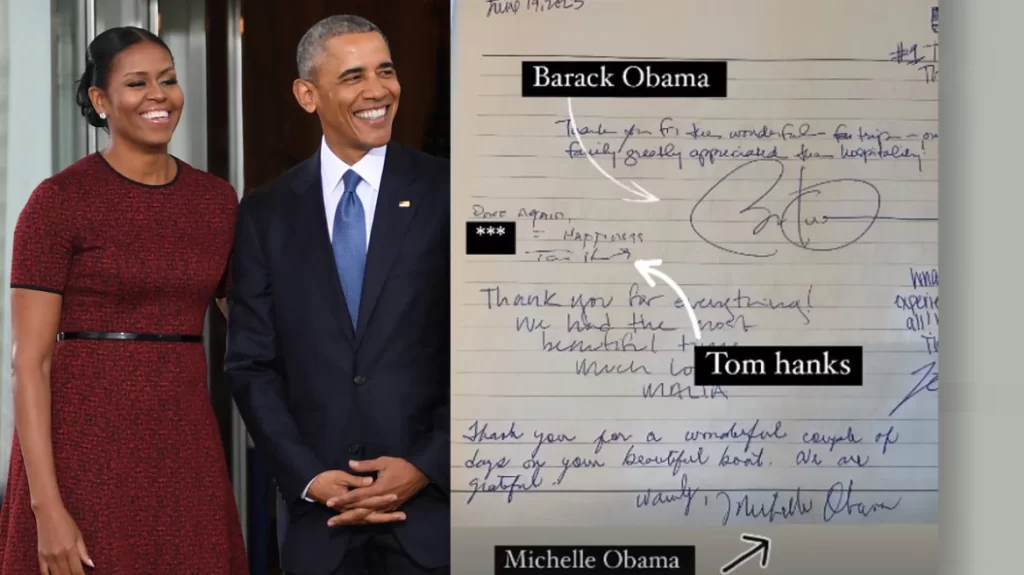 June 19, 2023
#1 T
Barack Obama
Thank you for the wonderful
family greatly appreciated the hospitality.
Once Again,
***
= Happiness
Thank you for everything!
We had the most
beautiful
much lo
MALIA
experie
all!
Tom hanks
Thank you for a wonderful couple of
days on your beautiful boat. We are
grateful.
Warmly, Michelle Obama
Michelle Obama